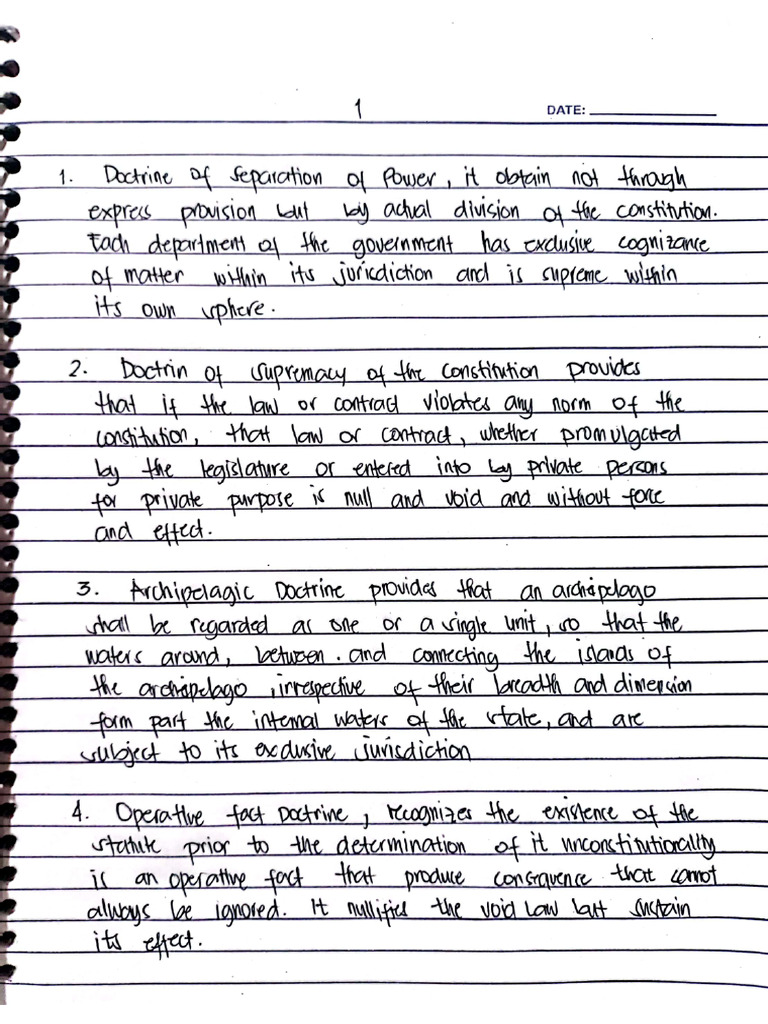 1
DATE:
1. Doctrine of Separation of Power, it obtain not through
express provision but by actual division of the constitution.
Each department of the government has exclusive cognizance
of matter within its jurisdiction and is supreme within
its own sphere.
2. Doctrin of supremacy of the constitution provides
that if the law or contract violates any norm of the
constitution, that law or contract, whether promulgated
by the legislature or entered into by private persons
for private purpose is null and void and without force
and effect.
3. Archipelagic Doctrine provides that an archipelago
shall be regarded as one or a single unit, so that the
waters around, between and connecting the islands of
the archipelago, irrespective of their breadth and dimension
form part the internal waters of the state, and are
subject to its exclusive jurisdiction
4. Operative fact Doctrine, recognizes the existence of the
statute prior to the determination of it unconstitutionally
is an operative fact that produce consequence that cannot
always be ignored. It nullifies the void law but sustain
its effect.